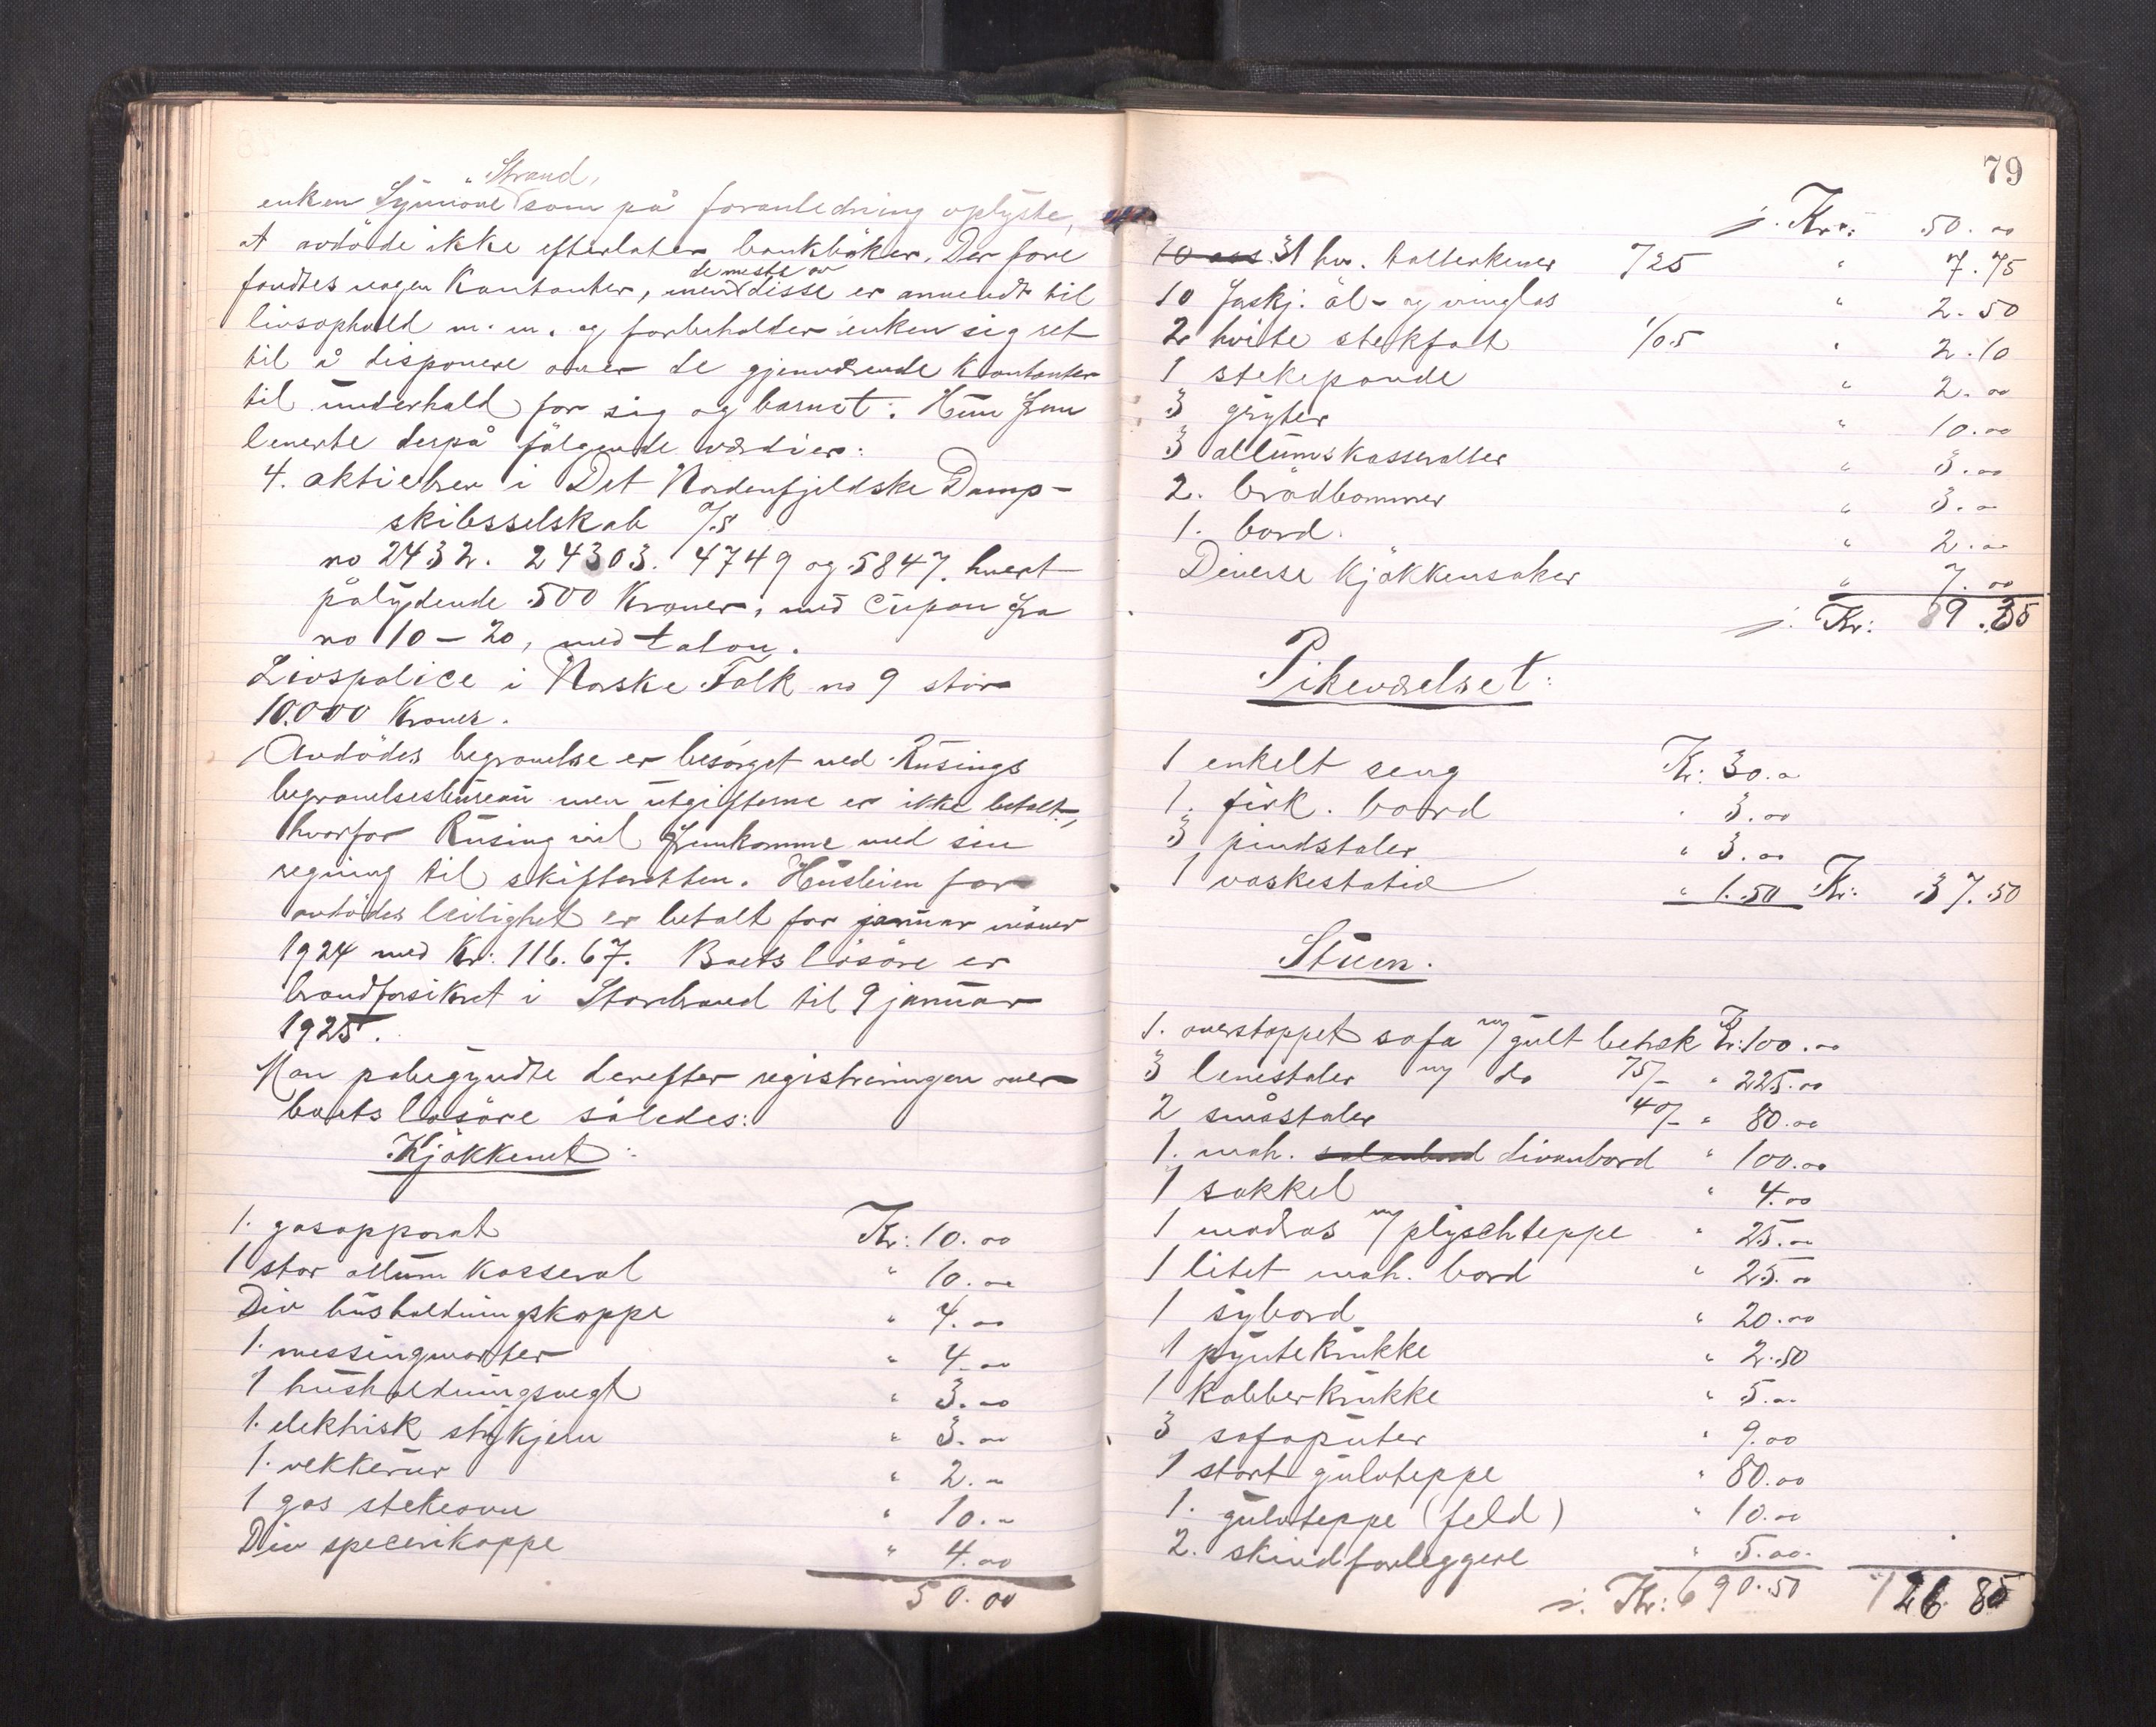 Strand,
enken Synnöve som på foranledning oplyste,
at avdöde ikke efterlater bankböker. Der fore
de meste av
fandtes nogen Kontanter, men disse er anvendt til
livsophold m. m. og forbeholder enken sig ret
til å disponere over de gjenværende Kontanter
til underhold for sig og barnet. Hun frem
leverte derpå fölgende værdier:
4. aktiebrev i Det Nordenfjeldske Damp-
skibsselskab A/S
no 2432. 24303. 4749 og 5847. hvert
pålydende 500 Kroner, med Cupon fra
no 10 - 20, med talon.
Livspolice i Norske Folk no 9 stor
10.000 Kroner.
Avdödes begravelse er besörget ved Rusings
begravelsesbureau men utgifterne er ikke betalt,
hvorfor Rusing vil fremkomme med sin
regning til skifteretten. Husleien for
avdödes leilighet er betalt for januar måned
1924 med Kr: 116.67. Boets lösöre er
brandforsikret i Storebrand til 9 januar
1925.
Man påbegyndte derefter registreringen over
boets lösöre således:
Kjökkenet:
1. gasapparat Kr: 10.00
1 stor allum Kasserol " 10.00
Div husholdningskoppe " 4.00
1. messingmorter " 4.00
1 husholdningsvegt " 3.00
1. elektrisk strykjern " 3.00
1. vekkerur " 2.00
1 gas stekeovn " 10.00
Div specerikoppe " 4.00
50.00
79
j. Kr: 50.00
10 ass. 31 hv. tallerkener 725 " 7.75
10 forskj. öl- og vinglas " 2.50
2 hvite stekfat 1/05 " 2.10
1 stekepande " 2.00
3 gryter " 10.00
3 allumskasseroller " 3.00
2. brödbommer " 3.00
1. bord. " 2.00
Diverse Kjökkensaker " 7.00
j. Kr: 89.35
Pikeværelset:
1 enkelt seng Kr: 30.00
1. firk. bord " 3.00
3 pindstoler " 3.00
1 vaskestativ " 1.50 Kr: 37.50
Stuen.
1. overstoppet sofa m/ gult betræk Kr: 100.00
3 lenestoler m/ do 75/- " 225.00
2 småstoler 40/- " 80.00
1. mah. salonbord divanbord " 100.00
1 sokkel " 4.00
1 madras m/ plyschteppe " 25.00
1 litet mah. bord " 25.00
1 sybord " 20.00
1 pyntekrukke " 2.50
1 Kobberkrukke " 5.00
3 sofaputer " 9.00
1 stort gulvteppe " 80.00
1. gulvteppe (feld) " 10.00
2. skindforleggere " 5.00
j. Kr: 690.50 126 85